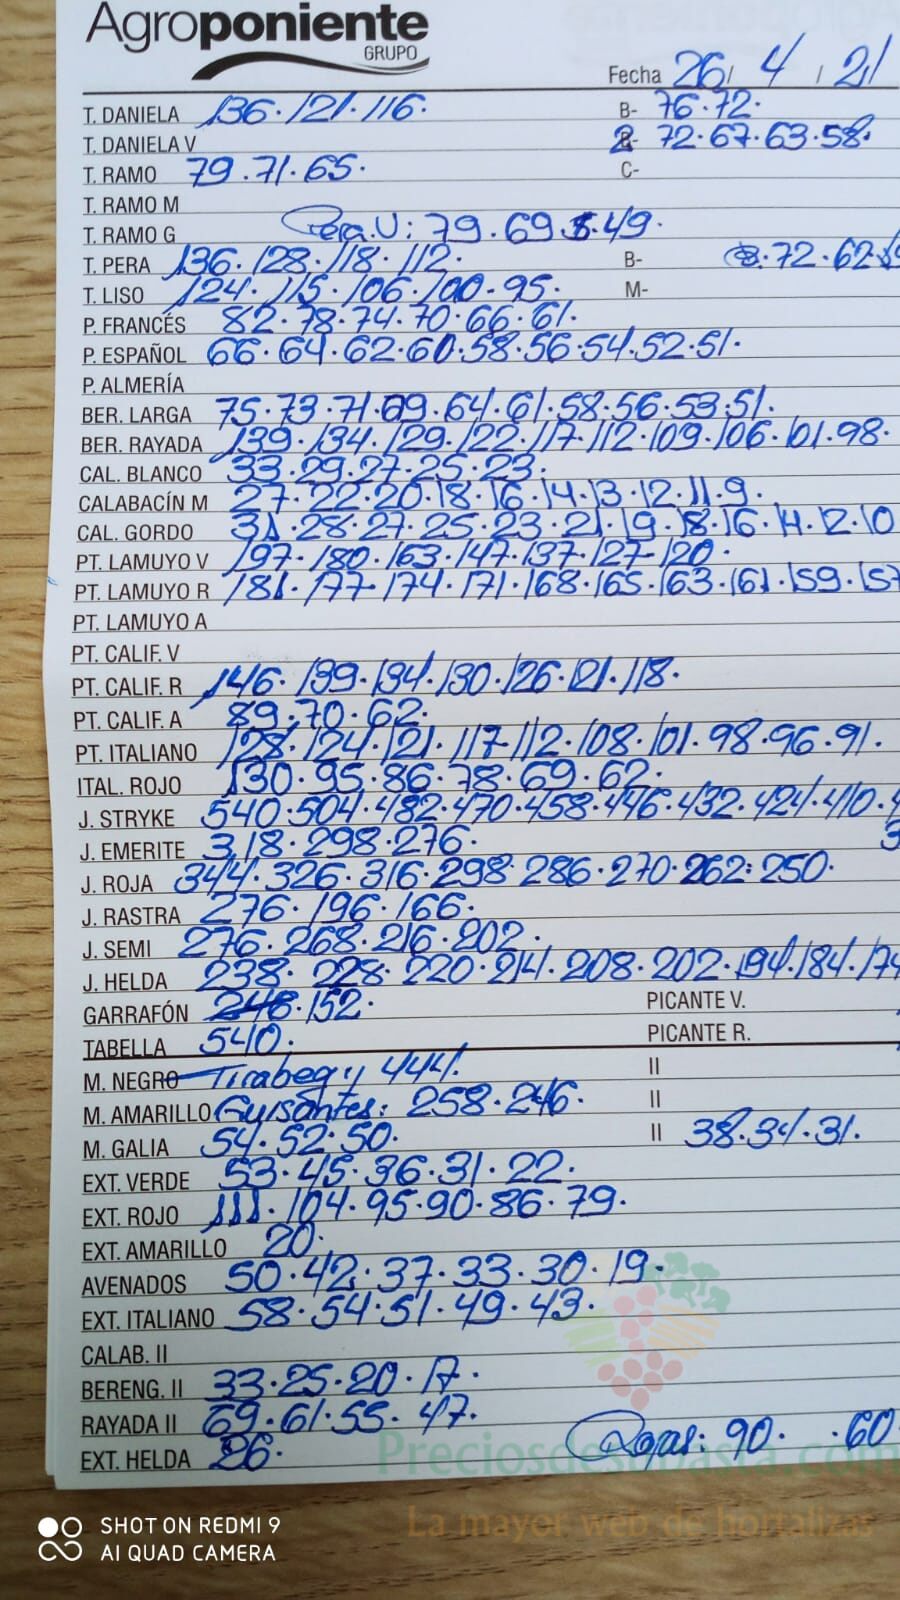 Agroponiente
GRUPO
Fecha 26/ 4 / 21
T. DANIELA 136·121·116· B- 76·72·
T. DANIELA V 2 72·67·63·58·
T. RAMO 79·71·65· C-
T. RAMO M
T. RAMO G Pera V: 79·69·49·
T. PERA 136·128·118·112· B- 72·62
T. LISO 124·115·106·100·95· M-
P. FRANCÉS 82·78·74·70·66·61·
P. ESPAÑOL 66·64·62·60·58·56·54·52·51·
P. ALMERÍA
BER. LARGA 75·73·71·69·64·61·58·56·53·51·
BER. RAYADA 139·134·129·122·117·112·109·106·101·98·
CAL. BLANCO 33·29·27·25·23·
CALABACÍN M 27·22·20·18·16·14·13·12·11·9·
CAL. GORDO 31·28·27·25·23·21·19·18·16·14·12·10
PT. LAMUYO V 197·180·163·147·137·127·120·
PT. LAMUYO R 181·177·174·171·168·165·163·161·159·157
PT. LAMUYO A
PT. CALIF. V
PT. CALIF. R 146·139·134·130·126·121·118·
PT. CALIF. A 89·70·62·
PT. ITALIANO 128·124·121·117·112·108·101·98·96·91·
ITAL. ROJO 130·95·86·78·69·62·
J. STRYKE 540·504·482·470·458·446·432·424·410·
J. EMERITE 318·298·276·
J. ROJA 344·326·316·298·286·270·262·250·
J. RASTRA 276·196·166·
J. SEMI 276·268·216·202·
J. HELDA 238·228·220·214·208·202·194·184·174
GARRAFÓN 246·152· PICANTE V.
TABELLA 540· PICANTE R.
M. NEGRO Tirabeq y 444· II
M. AMARILLO Guisantes: 258·246· II
M. GALIA 54·52·50· II 38·34·31·
EXT. VERDE 53·45·36·31·22·
EXT. ROJO 111·104·95·90·86·79·
EXT. AMARILLO 20·
AVENADOS 50·42·37·33·30·19·
EXT. ITALIANO 58·54·51·49·43·
CALAB. II
BERENG. II 33·25·20·17·
RAYADA II 69·61·55·47·
EXT. HELDA 26· Rojas: 90· ·60·
Preciosdesubasta.com
La mayor web de hortalizas
SHOT ON REDMI 9
AI QUAD CAMERA